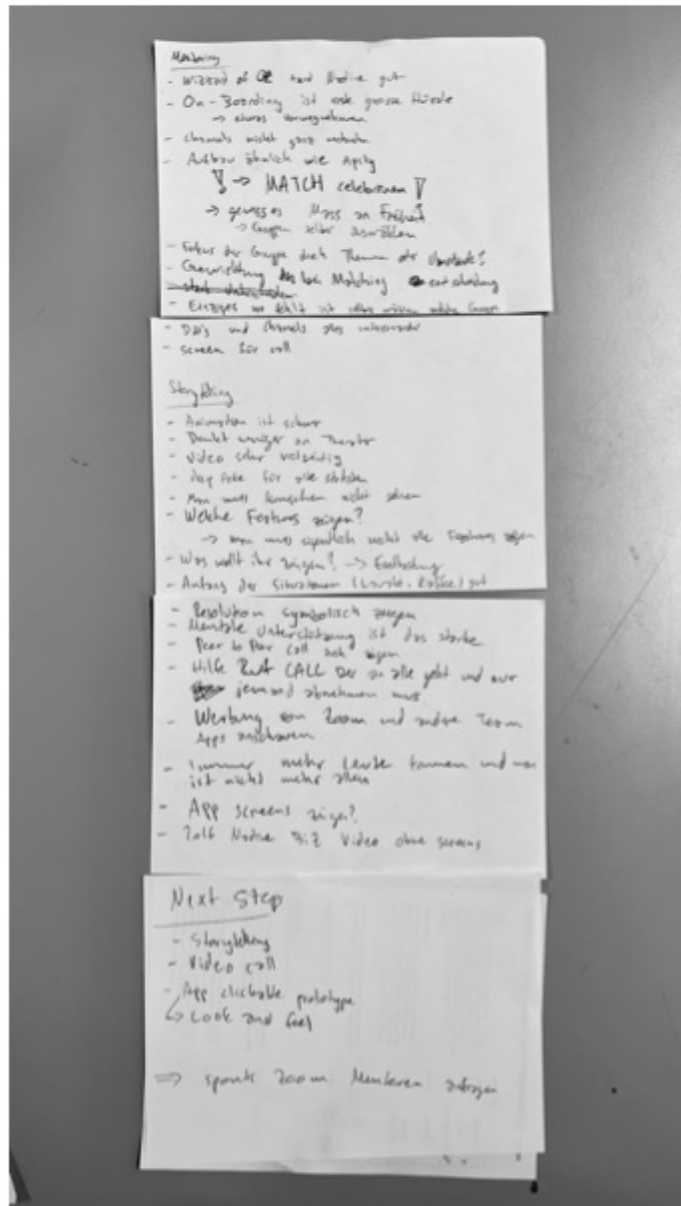 Mentoring
- Wizard of Oz fand Nadine gut
- On-Boarding ist eine grosse Hürde
→ etwas vorwegnehmen
- channels nicht ganz
- Aufbau ähnlich wie
! → MATCH celebrieren !
→ gewisses Mass an Freiheit
→ Gruppen selber auswählen
- Fokus der Gruppe durch Themen oder ?
- Gewichtung bei Matching entscheidung
- Einziges wo fehlt ist selber wählen welche Gruppe
- DM's und channels alles untereinander
- screen für call
Storytelling
- Animation ist schwer
- Denkt weniger an Theater
- Video sehr vielseitig
- für alle
- Man muss nicht sehen
- Welche Features zeigen?
→ man muss eigentlich nicht alle Features zeigen
- Was wollt ihr zeigen? →
- Anfang der Situationen ( ) gut
- Resolution symbolisch zeigen
- Mentale Unterstützung ist das starke
- Peer to Peer call auch zeigen
- Hilfe Ruf CALL Der an alle geht und nur
jemand abnehmen muss
- Werbung von Zoom und andre Team
Apps anschauen
- Immer mehr Leute kommen und man
ist nicht mehr allein
- App screens zeigen?
- Nadine Video ohne screens
Next Step
- Storytelling
- Video call
- App clickable prototype
↳ Look and feel
⇒ Zoom Mentoren anfragen